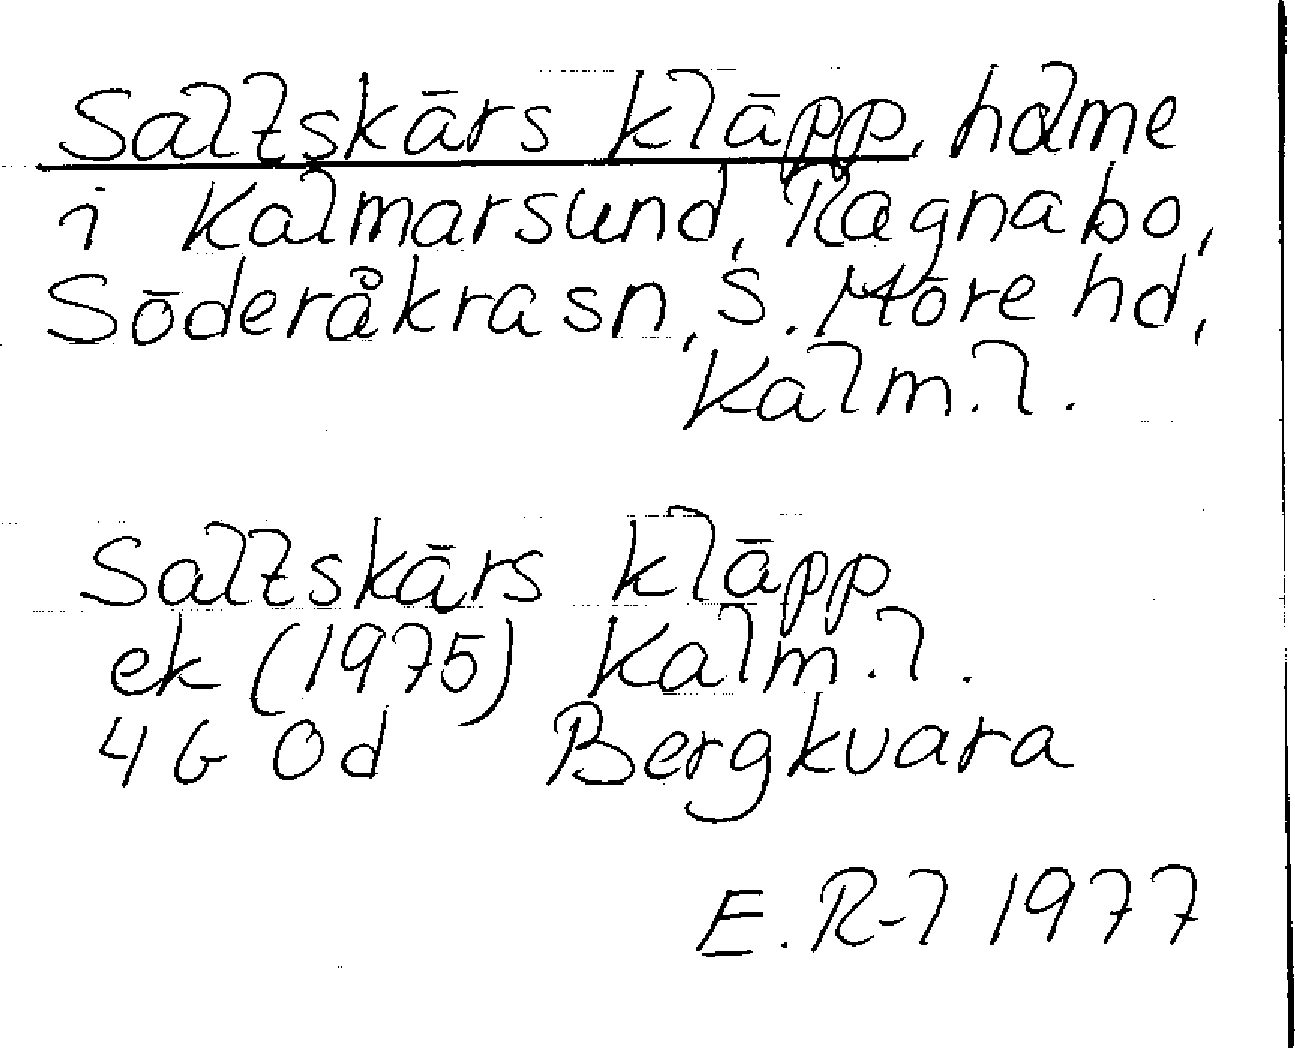 Saltskärs kläpp, holme
i Kalmarsund, Ragnabo,
Söderåkra sn, S. Möre hd,
Kalm. l.
Saltskärs kläpp
ek (1975) Kalm. l.
4G 0d Bergkvara
E. R-l 1977